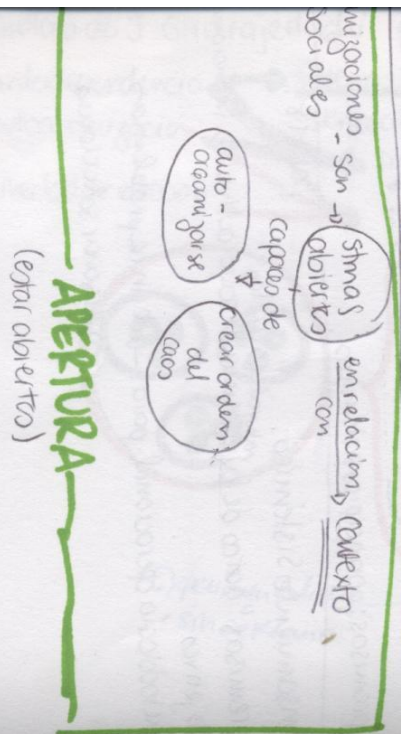 nizaciones - son → stmas
sociales
abiertos
en relación → contexto
con
capaces de
auto-
organizarse
crear orden
del
caos
APERTURA
(estar abiertos)